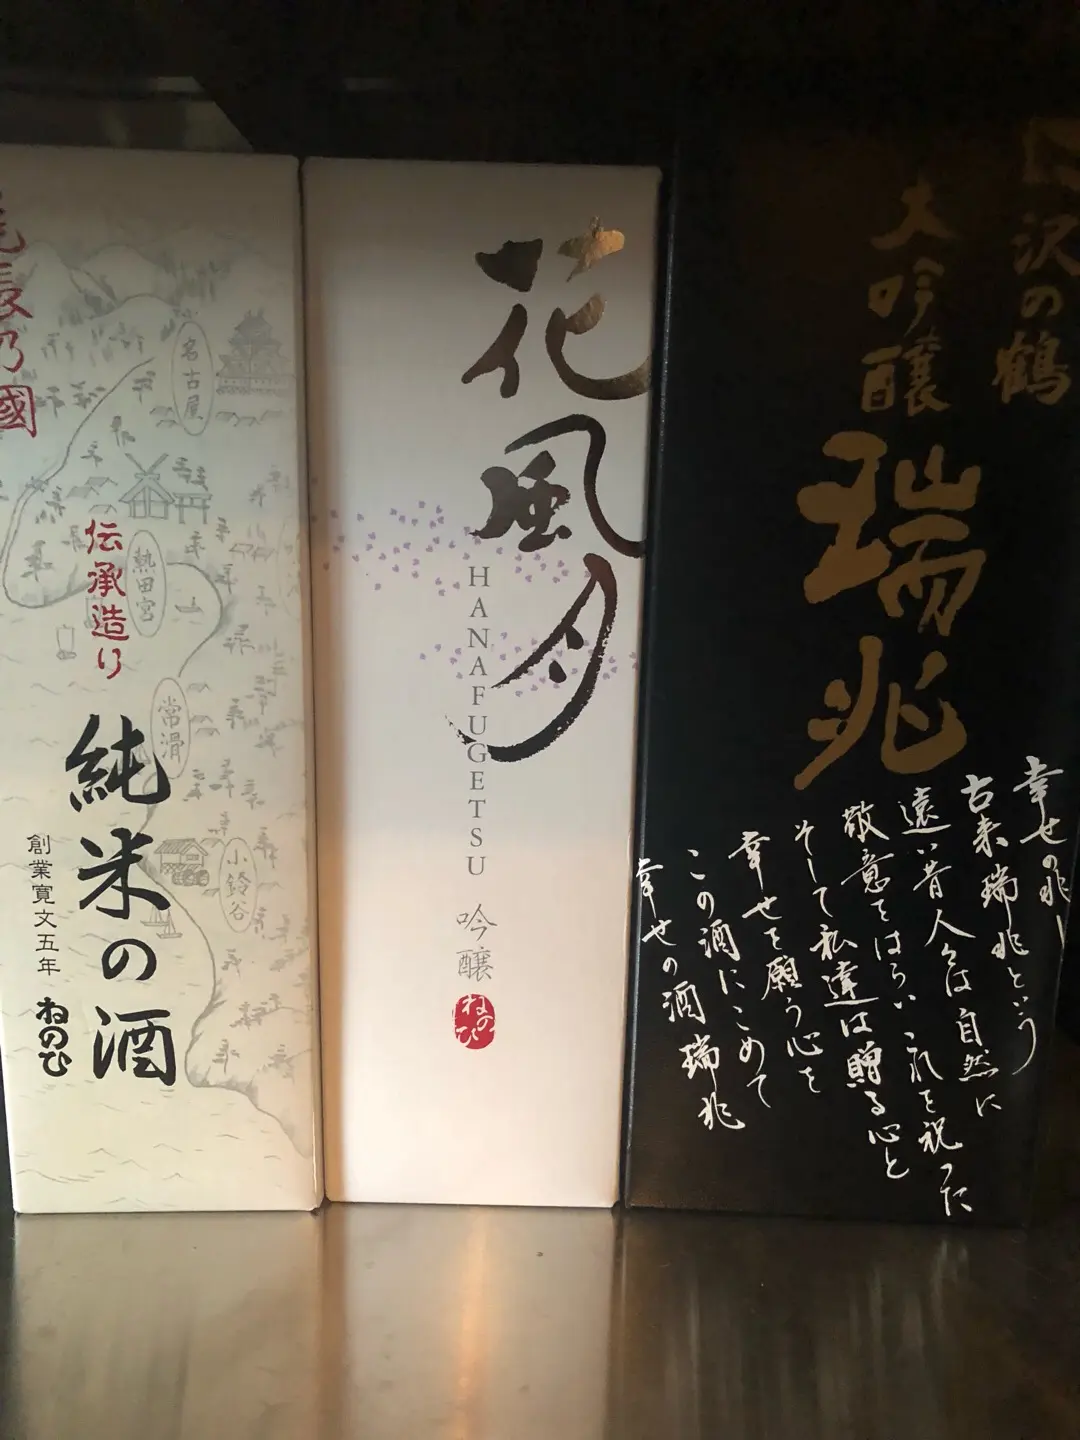 尾張乃國
名古屋
熱田宮
伝承造り
常滑
小鈴谷
純米の酒
創業寛文五年
ねのひ
花風月
HANAFUGETSU
吟醸
ねのひ
沢の鶴
大吟醸
瑞兆
幸せの兆し
古来瑞兆という
遠い昔人々は自然に
敬意をはらいこれを祝った
そして私達は贈る心と
幸せを願う心を
この酒にこめて
幸せの酒瑞兆